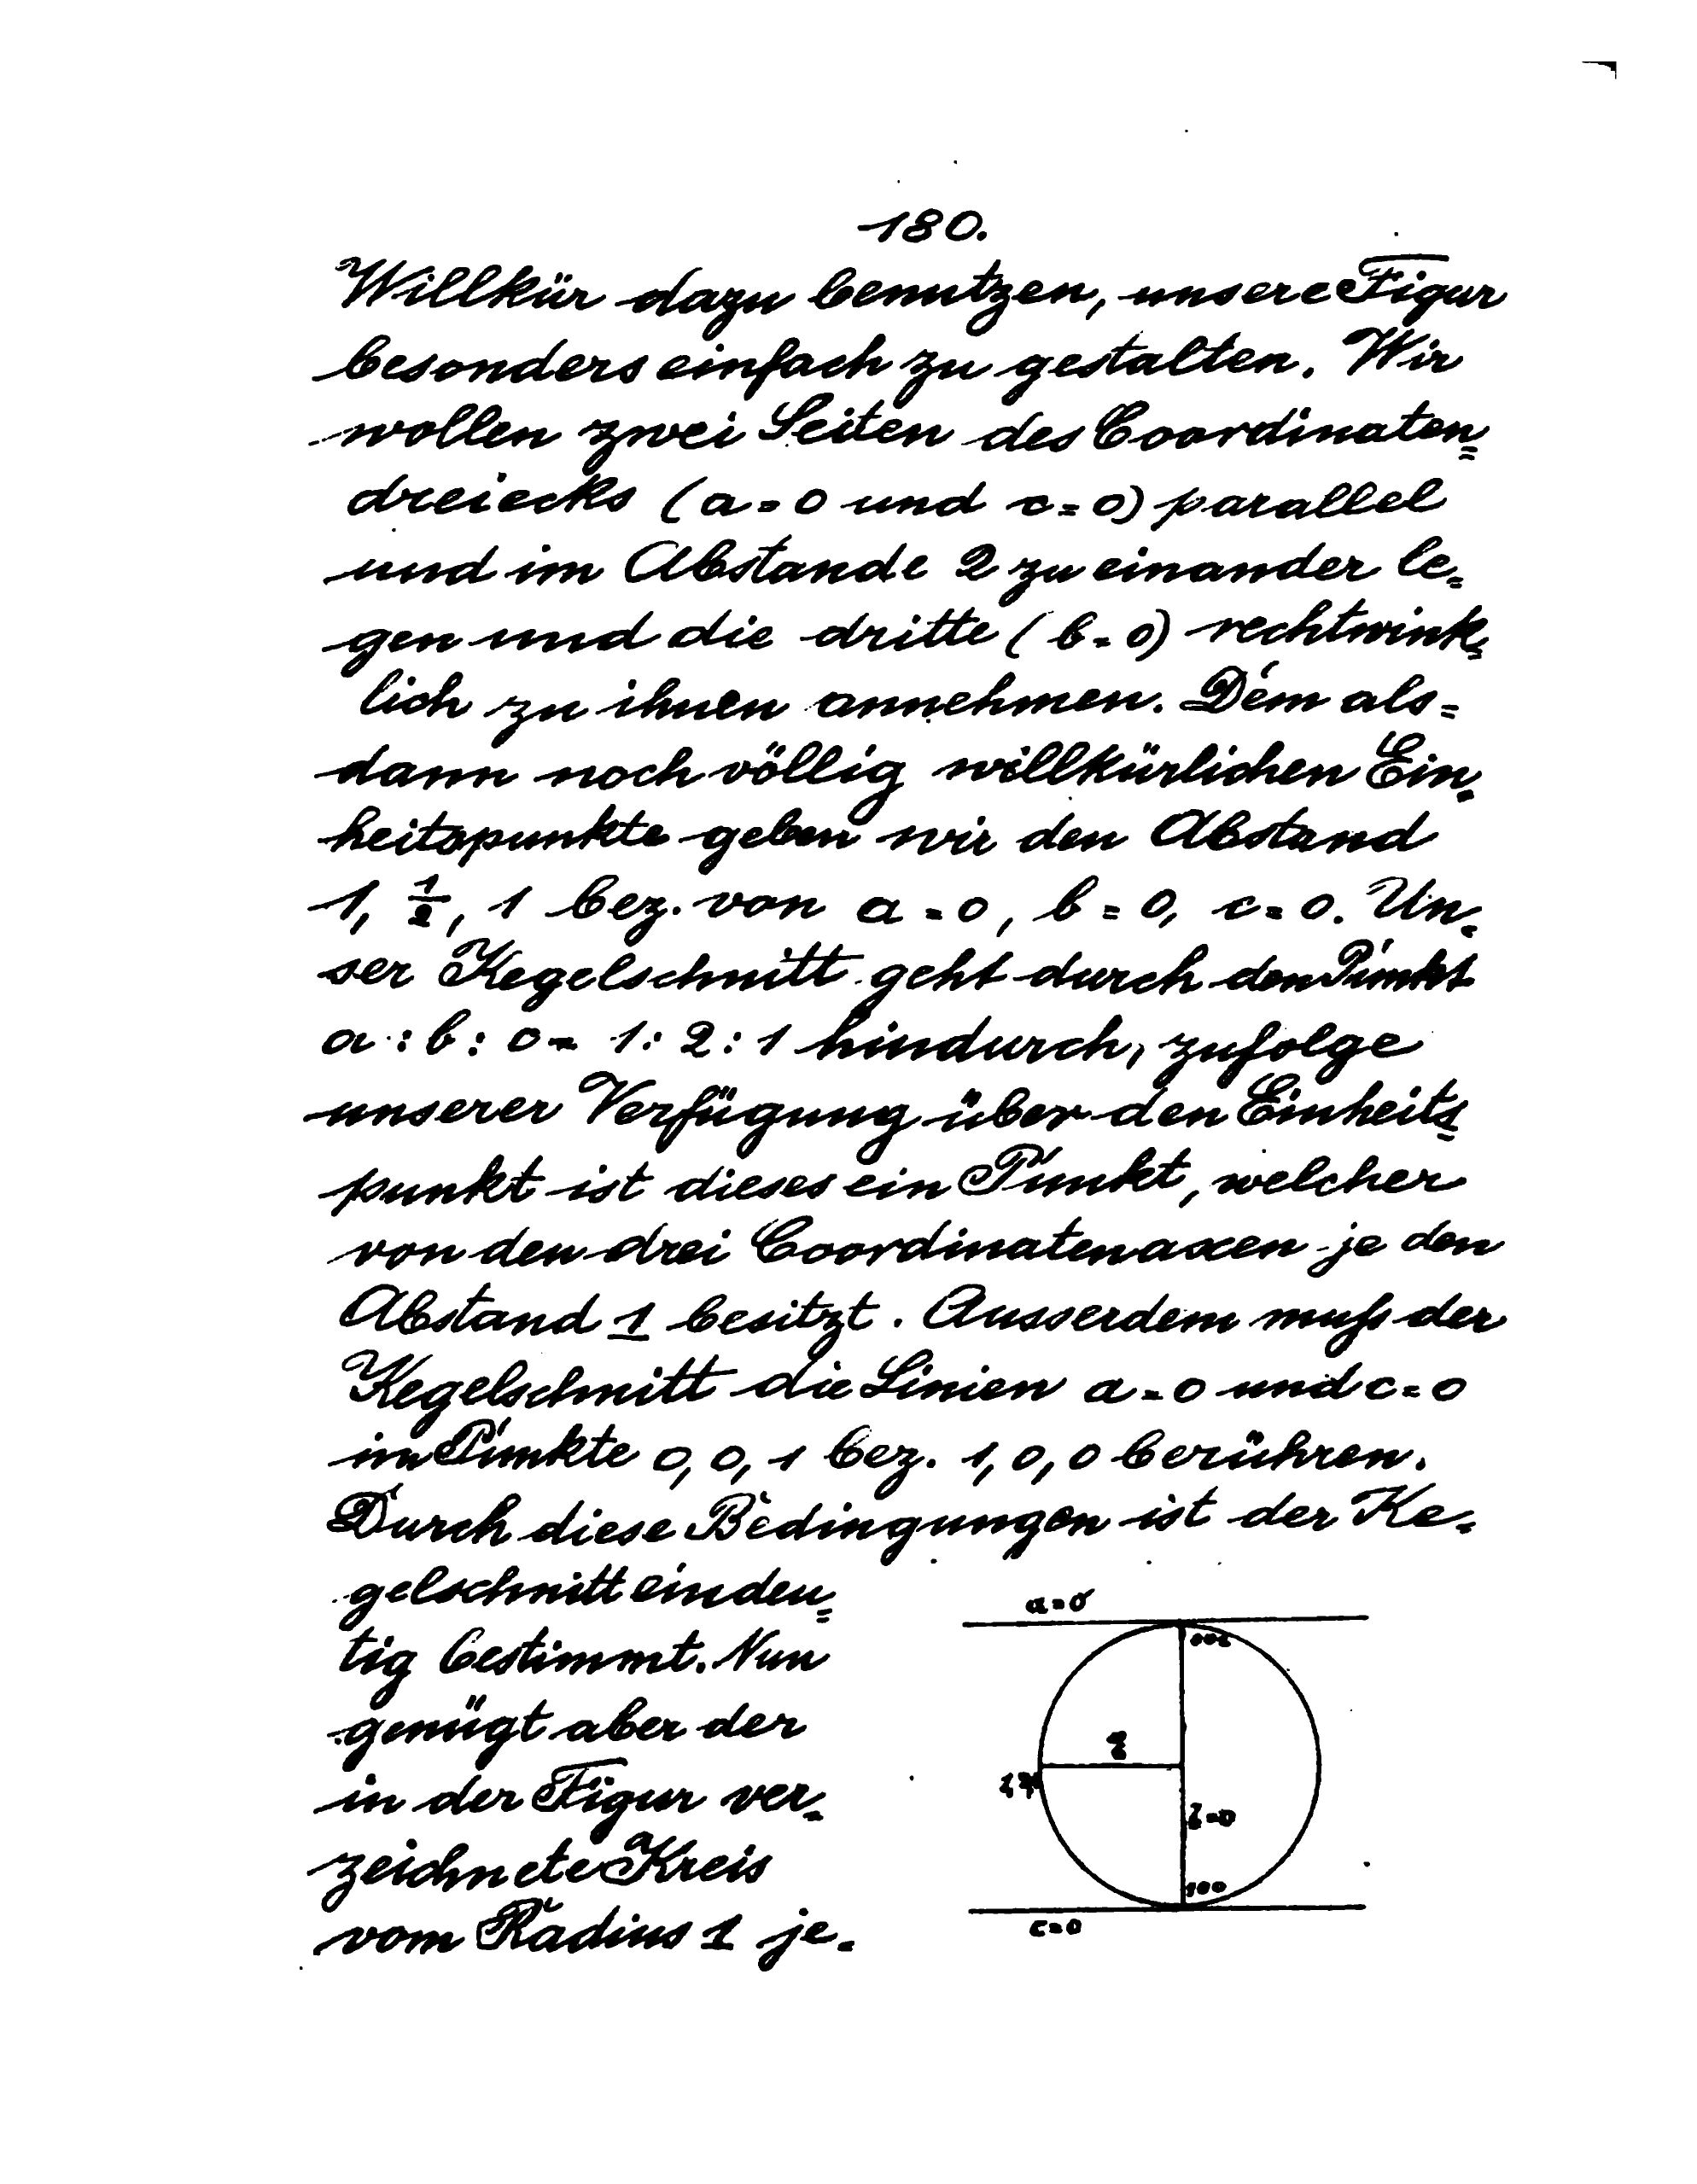 180.
Willkür dazu benutzen, unsere Figur
besonders einfach zu gestalten. Wir
wollen zwei Seiten des Coordinaten=
dreiecks (a=0 und c=0) parallel
und im Abstande 2 zu einander le=
gen und die dritte (b=0) rechtwink=
lich zu ihnen annehmen. Dem als=
dann noch völlig willkürlichen Ein=
heitspunkte geben wir den Abstand
1, 1/2, 1 bez. von a=0, b=0, c=0. Un=
ser Kegelschnitt geht durch den Punkt
a:b:c = 1:2:1 hindurch, zufolge
unserer Verfügung über den Einheits=
punkt ist dieses ein Punkt, welcher
von den drei Coordinatenaxen je den
Abstand 1 besitzt. Ausserdem muß der
Kegelschnitt die Linien a=0 und c=0
im Punkte 0,0,1 bez. 1,0,0 berühren.
Durch diese Bedingungen ist der Ke=
gelschnitt eindeu=
tig bestimmt. Nun
genügt aber der
in der Figur ver=
zeichnete Kreis
vom Radius 1 je=
a=0
001
b=0
100
c=0